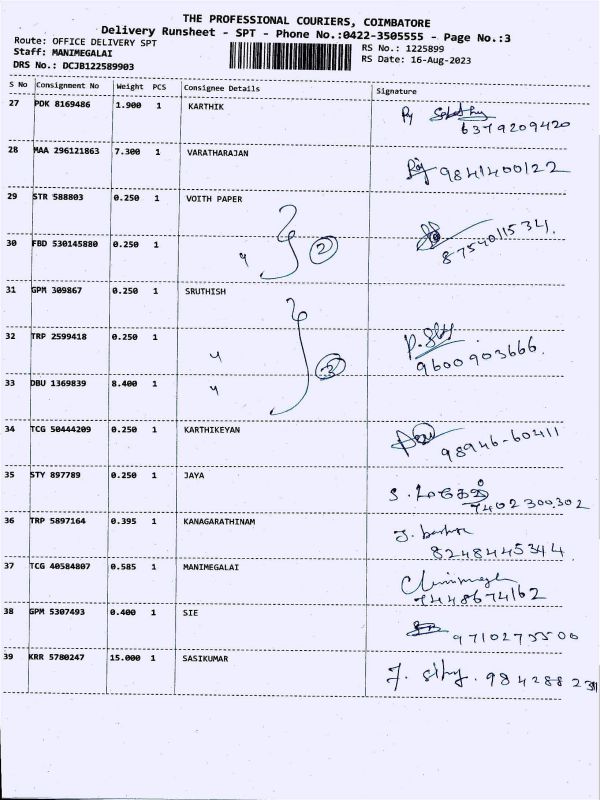 THE PROFESSIONAL COURIERS, COIMBATORE
Delivery Runsheet - SPT - Phone No.:0422-3505555 - Page No.:3
Route: OFFICE DELIVERY SPT
RS No.: 1225899
Staff: MANIMEGALAI
RS Date: 16-Aug-2023
DRS No.: DCJB122589903
S No Consignment No Weight PCS Consignee Details Signature
27 PDK 8169486 1.900 1 KARTHIK
6379209420
28 MAA 296121863 7.300 1 VARATHARAJAN
9841400122
29 STR 588803 0.250 1 VOITH PAPER
30 FBD 530145880 0.250 1 2 8754011534.
31 GPM 309867 0.250 1 SRUTHISH
32 TRP 2599418 0.250 1
9600903666.
33 DBU 1369839 8.400 1 3
34 TCG 50444209 0.250 1 KARTHIKEYAN
98946-60411
35 STY 897789 0.250 1 JAYA
7402300302
36 TRP 5897164 0.395 1 KANAGARATHINAM
8248445344
37 TCG 40584807 0.585 1 MANIMEGALAI
7448674162
38 GPM 5307493 0.400 1 SIE
9710275500
39 KRR 5780247 15.000 1 SASIKUMAR